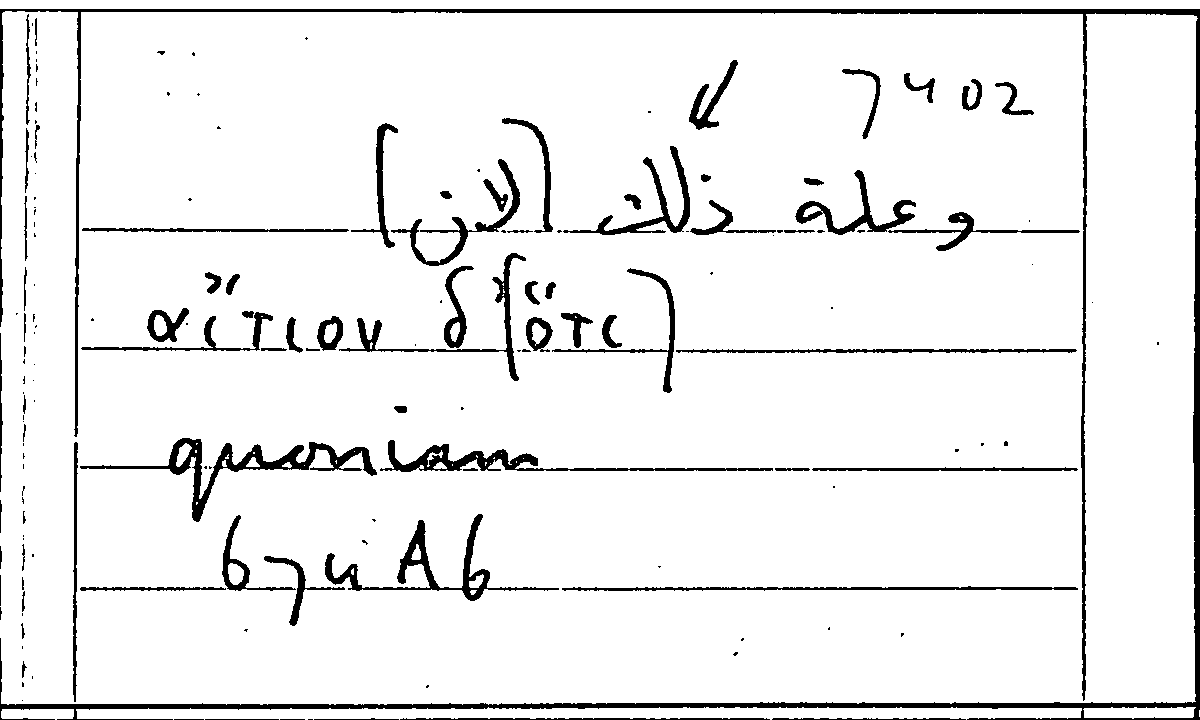 7402
وعلة ذلك [لان]
αἴτιον δ’[ὅτι]
quoniam
674A6